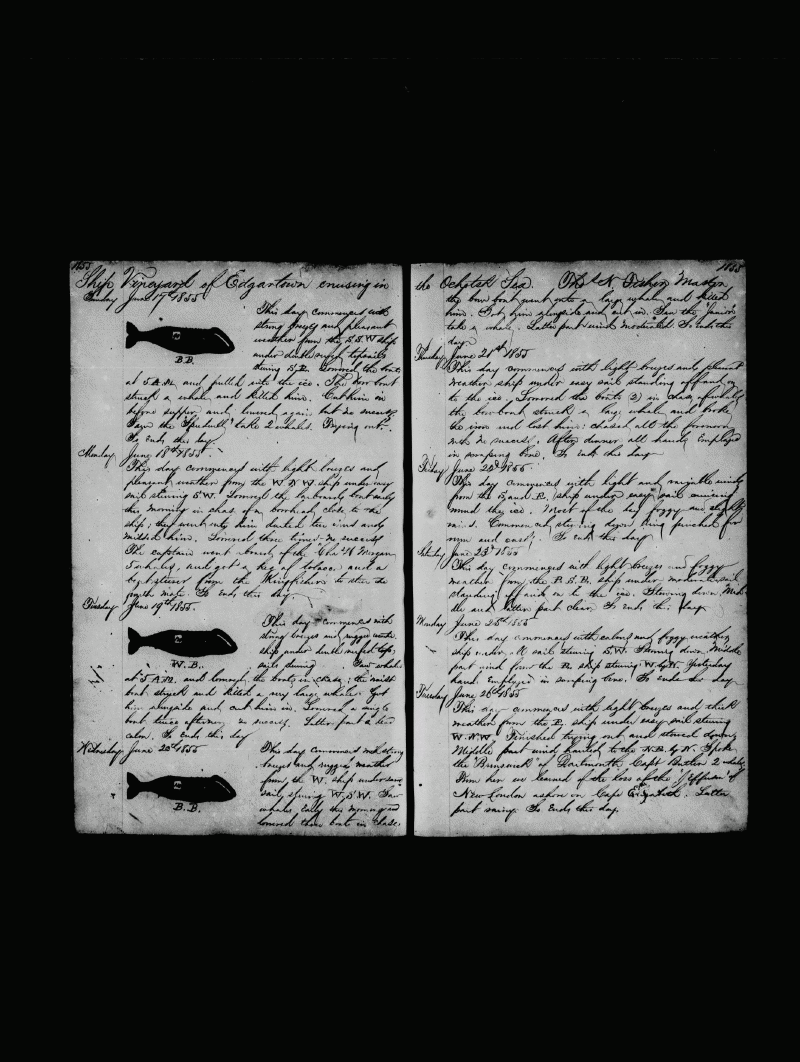 1855
Ship Vineyard of Edgartown cruising in
Sunday June 17th 1855
This day commences with
strong breezes and pleasant
weather from the S.S.W ship
under double reefed topsails
Lowered the boats
B.B.
at 5 A.M. and pulled into the ice. The bow boat
struck a whale and killed him. Cut him in
before supper and lowered again but no success
Saw the take 2 whales. Trying out.
So Ends this day.
Monday June 18th 1855.
This day commences with light breezes and
pleasant weather from the W N W ship under easy
sail steering S.W. Lowered the larboard boat early
this morning in chase of a bowhead close to the
ship; they went onto him darted two irons and
missed him. Lowered three times no success
The captain went aboard of the "Chs W Morgan"
and got a keg of tobacco and a
boatsteerer from the Kingfisher to steer the
fourth mate. So Ends this day.
Tuesday June 19th 1855.
This day commences with
strong breezes and rugged weather
ship under double reefed tops;
sails steering Saw whales
W.B.
at 5 A.M. and lowered the boats in chase; the waist
boat struck and killed a very large whale. Got
him alongside and cut him in. Lowered a single
boat twice afternoon no success. Latter part a dead
calm. So Ends this day
Wednesday June 20th 1855
This day commences with strong
breezes and rugged weather
from the W. ship under easy
sail steering W.S.W. Saw
whales early this morning and
lowered three boats in chase.
B.B.
1855
the Ochotsk Sea. Thos N. Fisher Master
the bow boat went onto a large whale and killed
him. Got him alongside and cut in. Saw the "Junior"
take a whale. Latter part wind moderated So ends this
day
Thursday June 21st 1855
This day commences with light breezes and pleasant
weather ship under easy sail standing off and on
to the ice. Lowered the boats (2) in chase of whales
the bow boat struck a large whale and broke
the iron and lost him: chased all the forenoon
with no success. After dinner all hands employed
in scraping bone. So ends this day
Friday June 22d 1855
This day commences with light and variable winds
from the S and E. ship under easy sail cruising
round the ice. Most of the day foggy and slightly
Commenced stowing down
So ends this day
Saturday June 23d 1855
This day commences with light breezes and foggy
weather from the E.S.E. ship under moderate sail
standing off and on to the ice. Stowing down. Mid-
dle and latter part clear. So Ends this day
Monday June 25th 1855
This day commences with calms and foggy weather
ship under all sail steering S.W. Stowing down. Middle
part wind from the E. ship steering W. by N. Yesterday
hands employed in scraping bone. So ends this day
Tuesday June 26th 1855
This day commences with light breezes and thick
weather from the E. ship under easy sail steering
W.N.W. Finished trying out and stowed down
Middle part wind hauled to the N.E. by N. Spoke
the "Brunswick" of Dartmouth Capt Butler 2 whales
From her we learned of the loss of the "Jefferson" of
New London ashore on Cape Elizabeth. Latter
part rainy. So Ends this day.